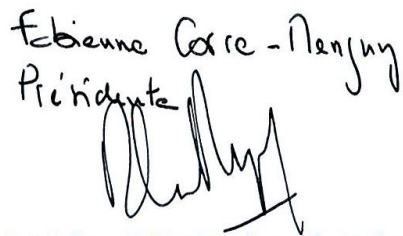 Fabienne Corre-Menguy
Présidente